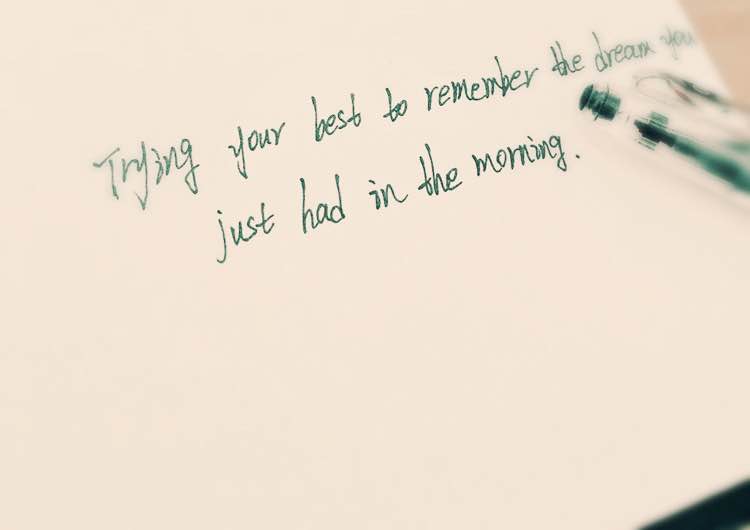 Trying your best to remember the dream you
just had in the morning.